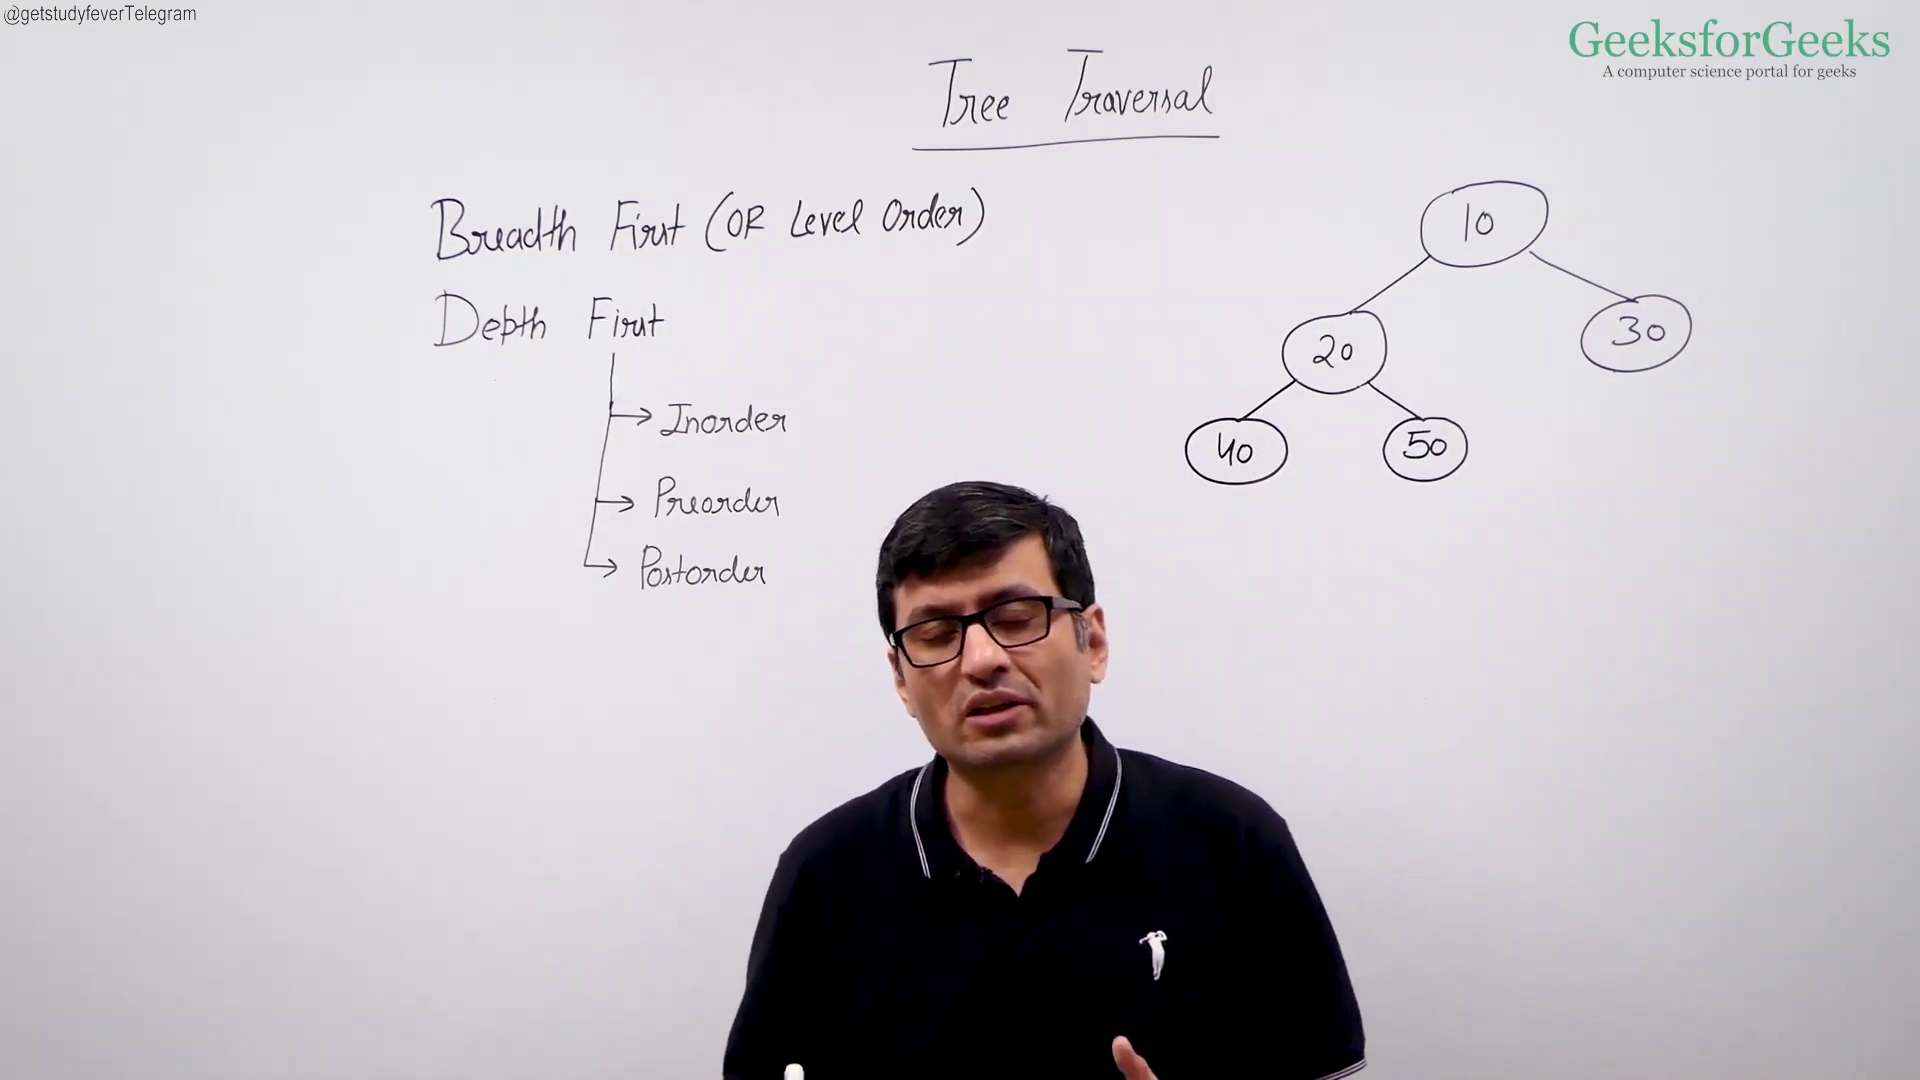 @getstudyfeverTelegram
GeeksforGeeks
A computer science portal for geeks
Tree Traversal
Breadth First (OR Level Order)
Depth First
Inorder
Preorder
Postorder
10
20
30
40
50